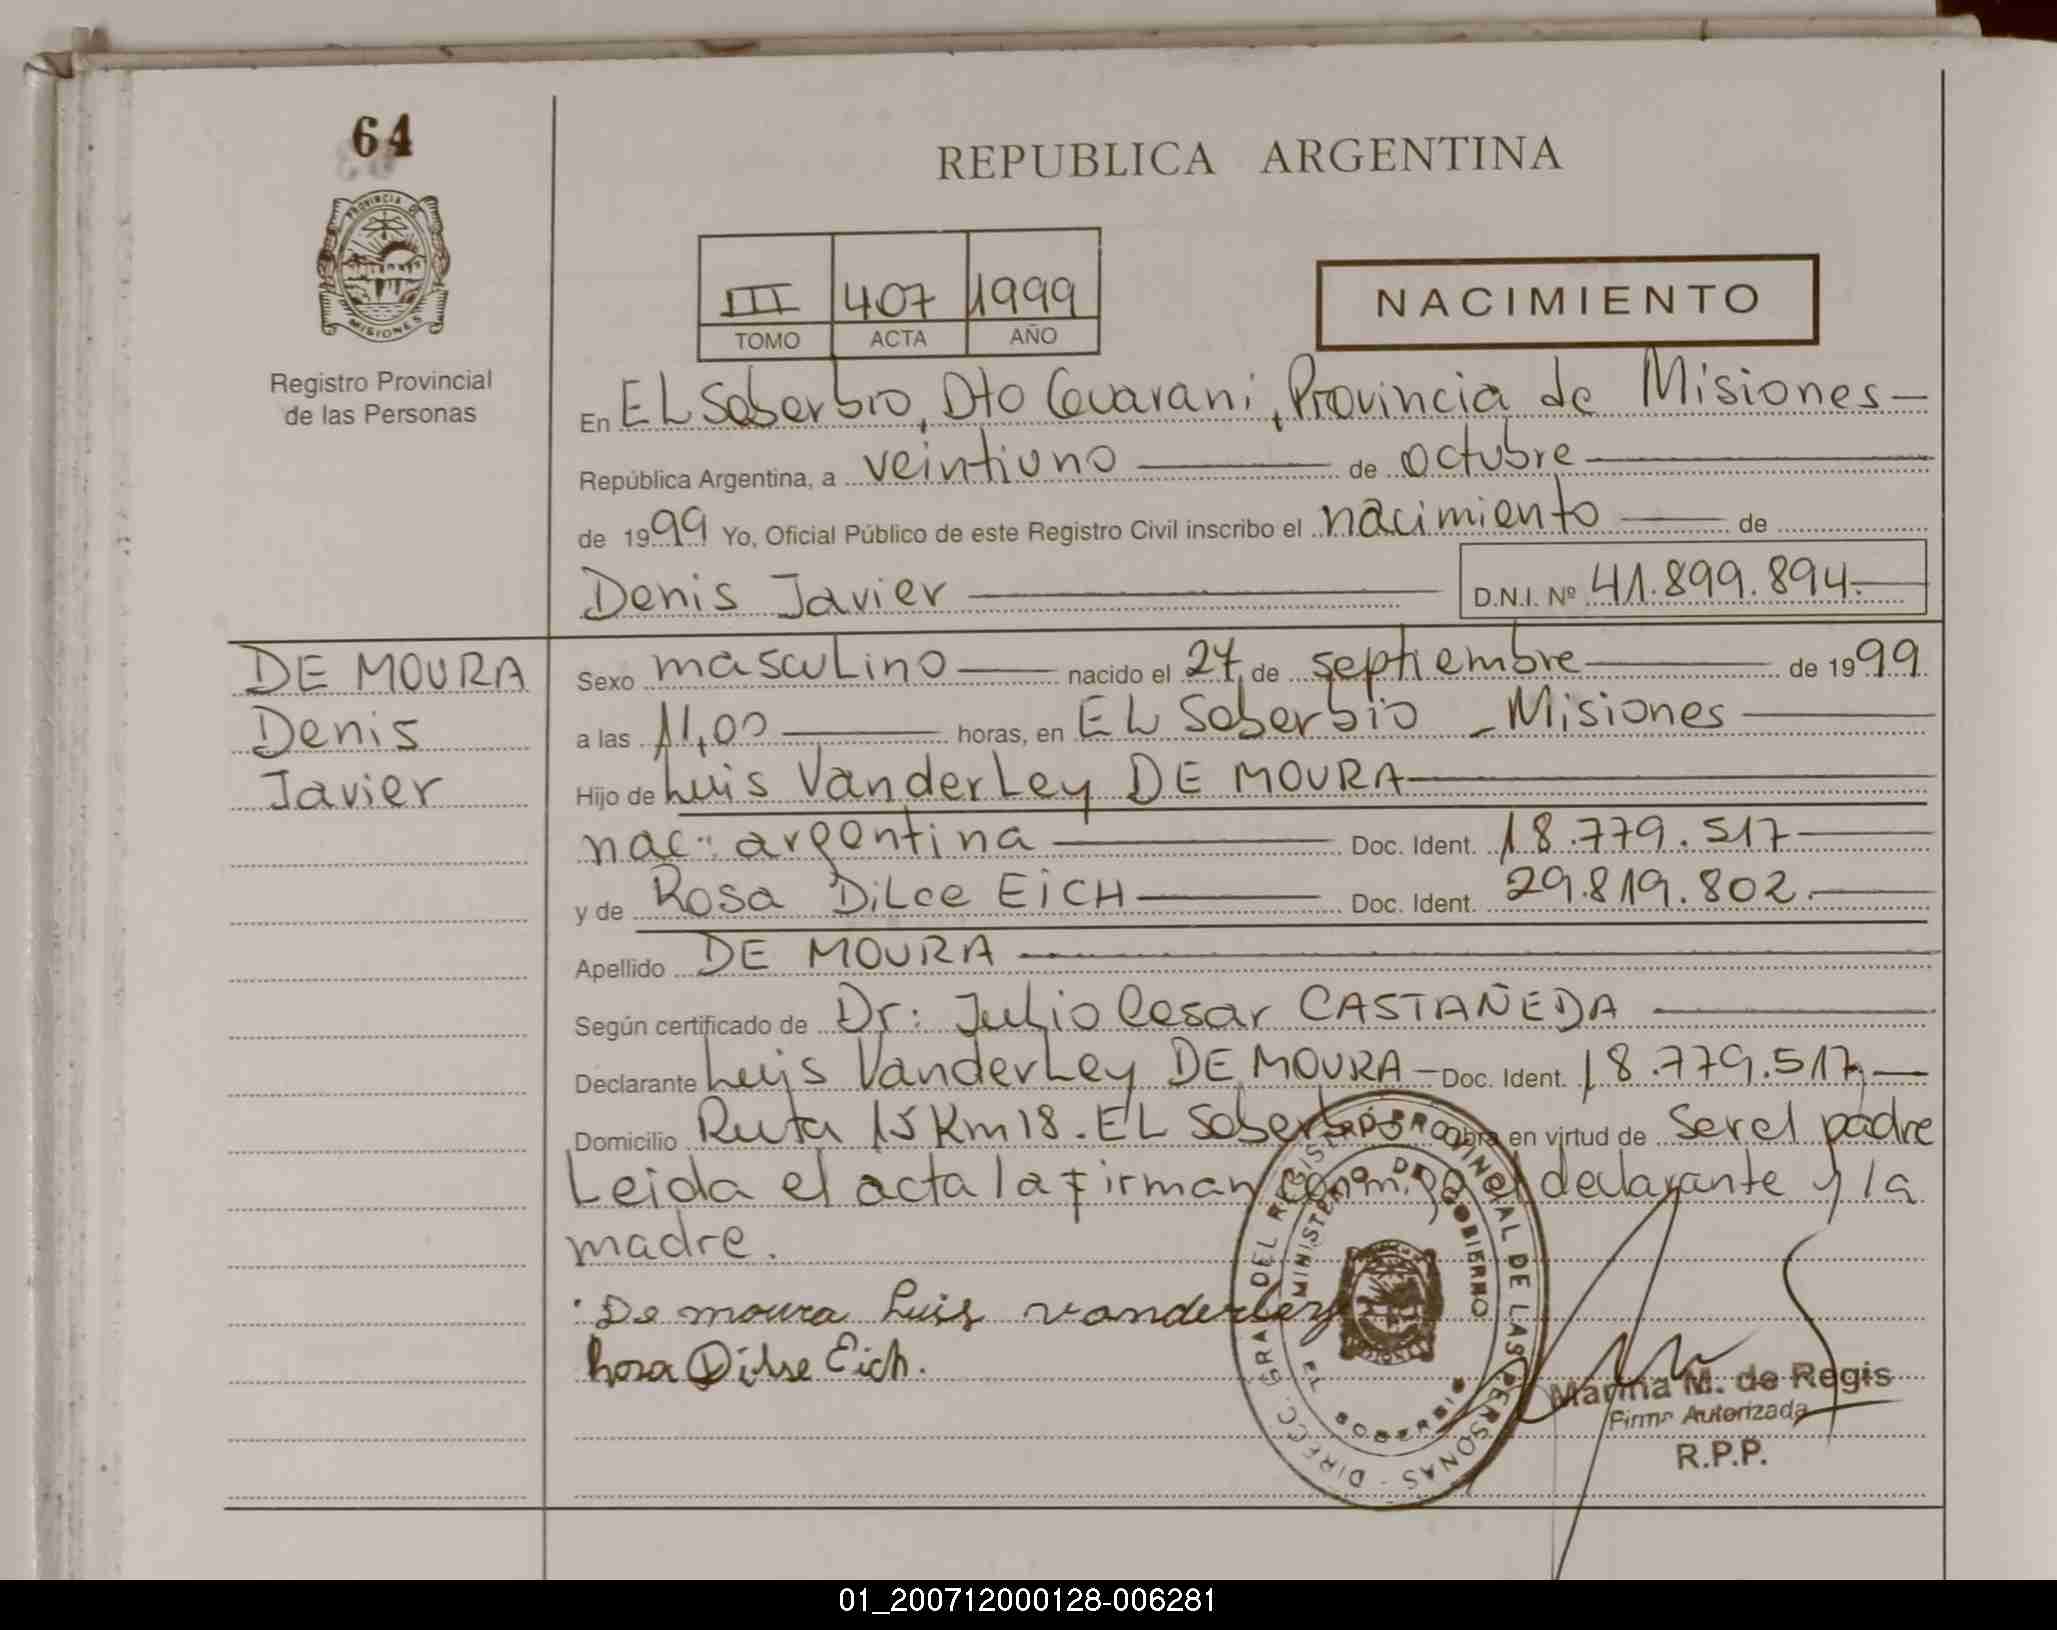 64
PROVINCIA DE
MISIONES
Registro Provincial
de las Personas
REPUBLICA ARGENTINA
III 407 1999
TOMO ACTA AÑO
NACIMIENTO
En EL Soberbio, Dto Guarani, Provincia de Misiones
República Argentina, a veintiuno de octubre
de 1999 Yo, Oficial Público de este Registro Civil inscribo el nacimiento de
Denis Javier D.N.I. Nº 41.899.894.
DE MOURA
Denis
Javier
Sexo masculino nacido el 27 de septiembre de 1999
a las 11,00 horas, en EL Soberbio - Misiones
Hijo de Luis VanderLey DE MOURA
nac: argentina Doc. Ident. 18.779.517
y de Rosa DiLce EiCH Doc. Ident. 29.819.802.
Apellido DE MOURA
Según certificado de Dr: Julio Cesar CASTAÑEDA
Declarante Luis VanderLey DE MOURA Doc. Ident. 18.779.517
Domicilio Ruta 15 Km 18. EL Soberbio Obra en virtud de ser el padre
Leida el acta la firman conmigo el declarante y la
madre.
De moura Luis vanderley
Rosa Dilse Eich.
DIRECC. GRAL DEL REGISTRO PROVINCIAL DE LAS PERSONAS
MINISTERIO DE GOBIERNO
EL SOBERBIO
Marina M. de Regis
Firma Autorizada
R.P.P.
01_200712000128-006281